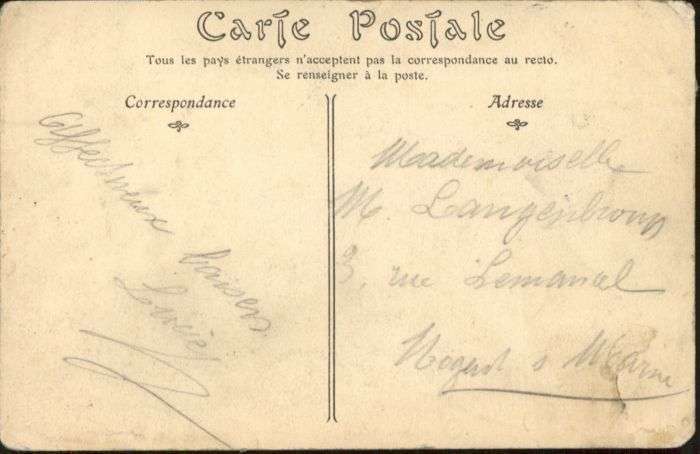 Carte Postale
Tous les pays étrangers n'acceptent pas la correspondance au recto.
Se renseigner à la poste.
Correspondance
Affectueux
baisers
Adresse
Mademoiselle
M.
3, rue
Nogent s Marne